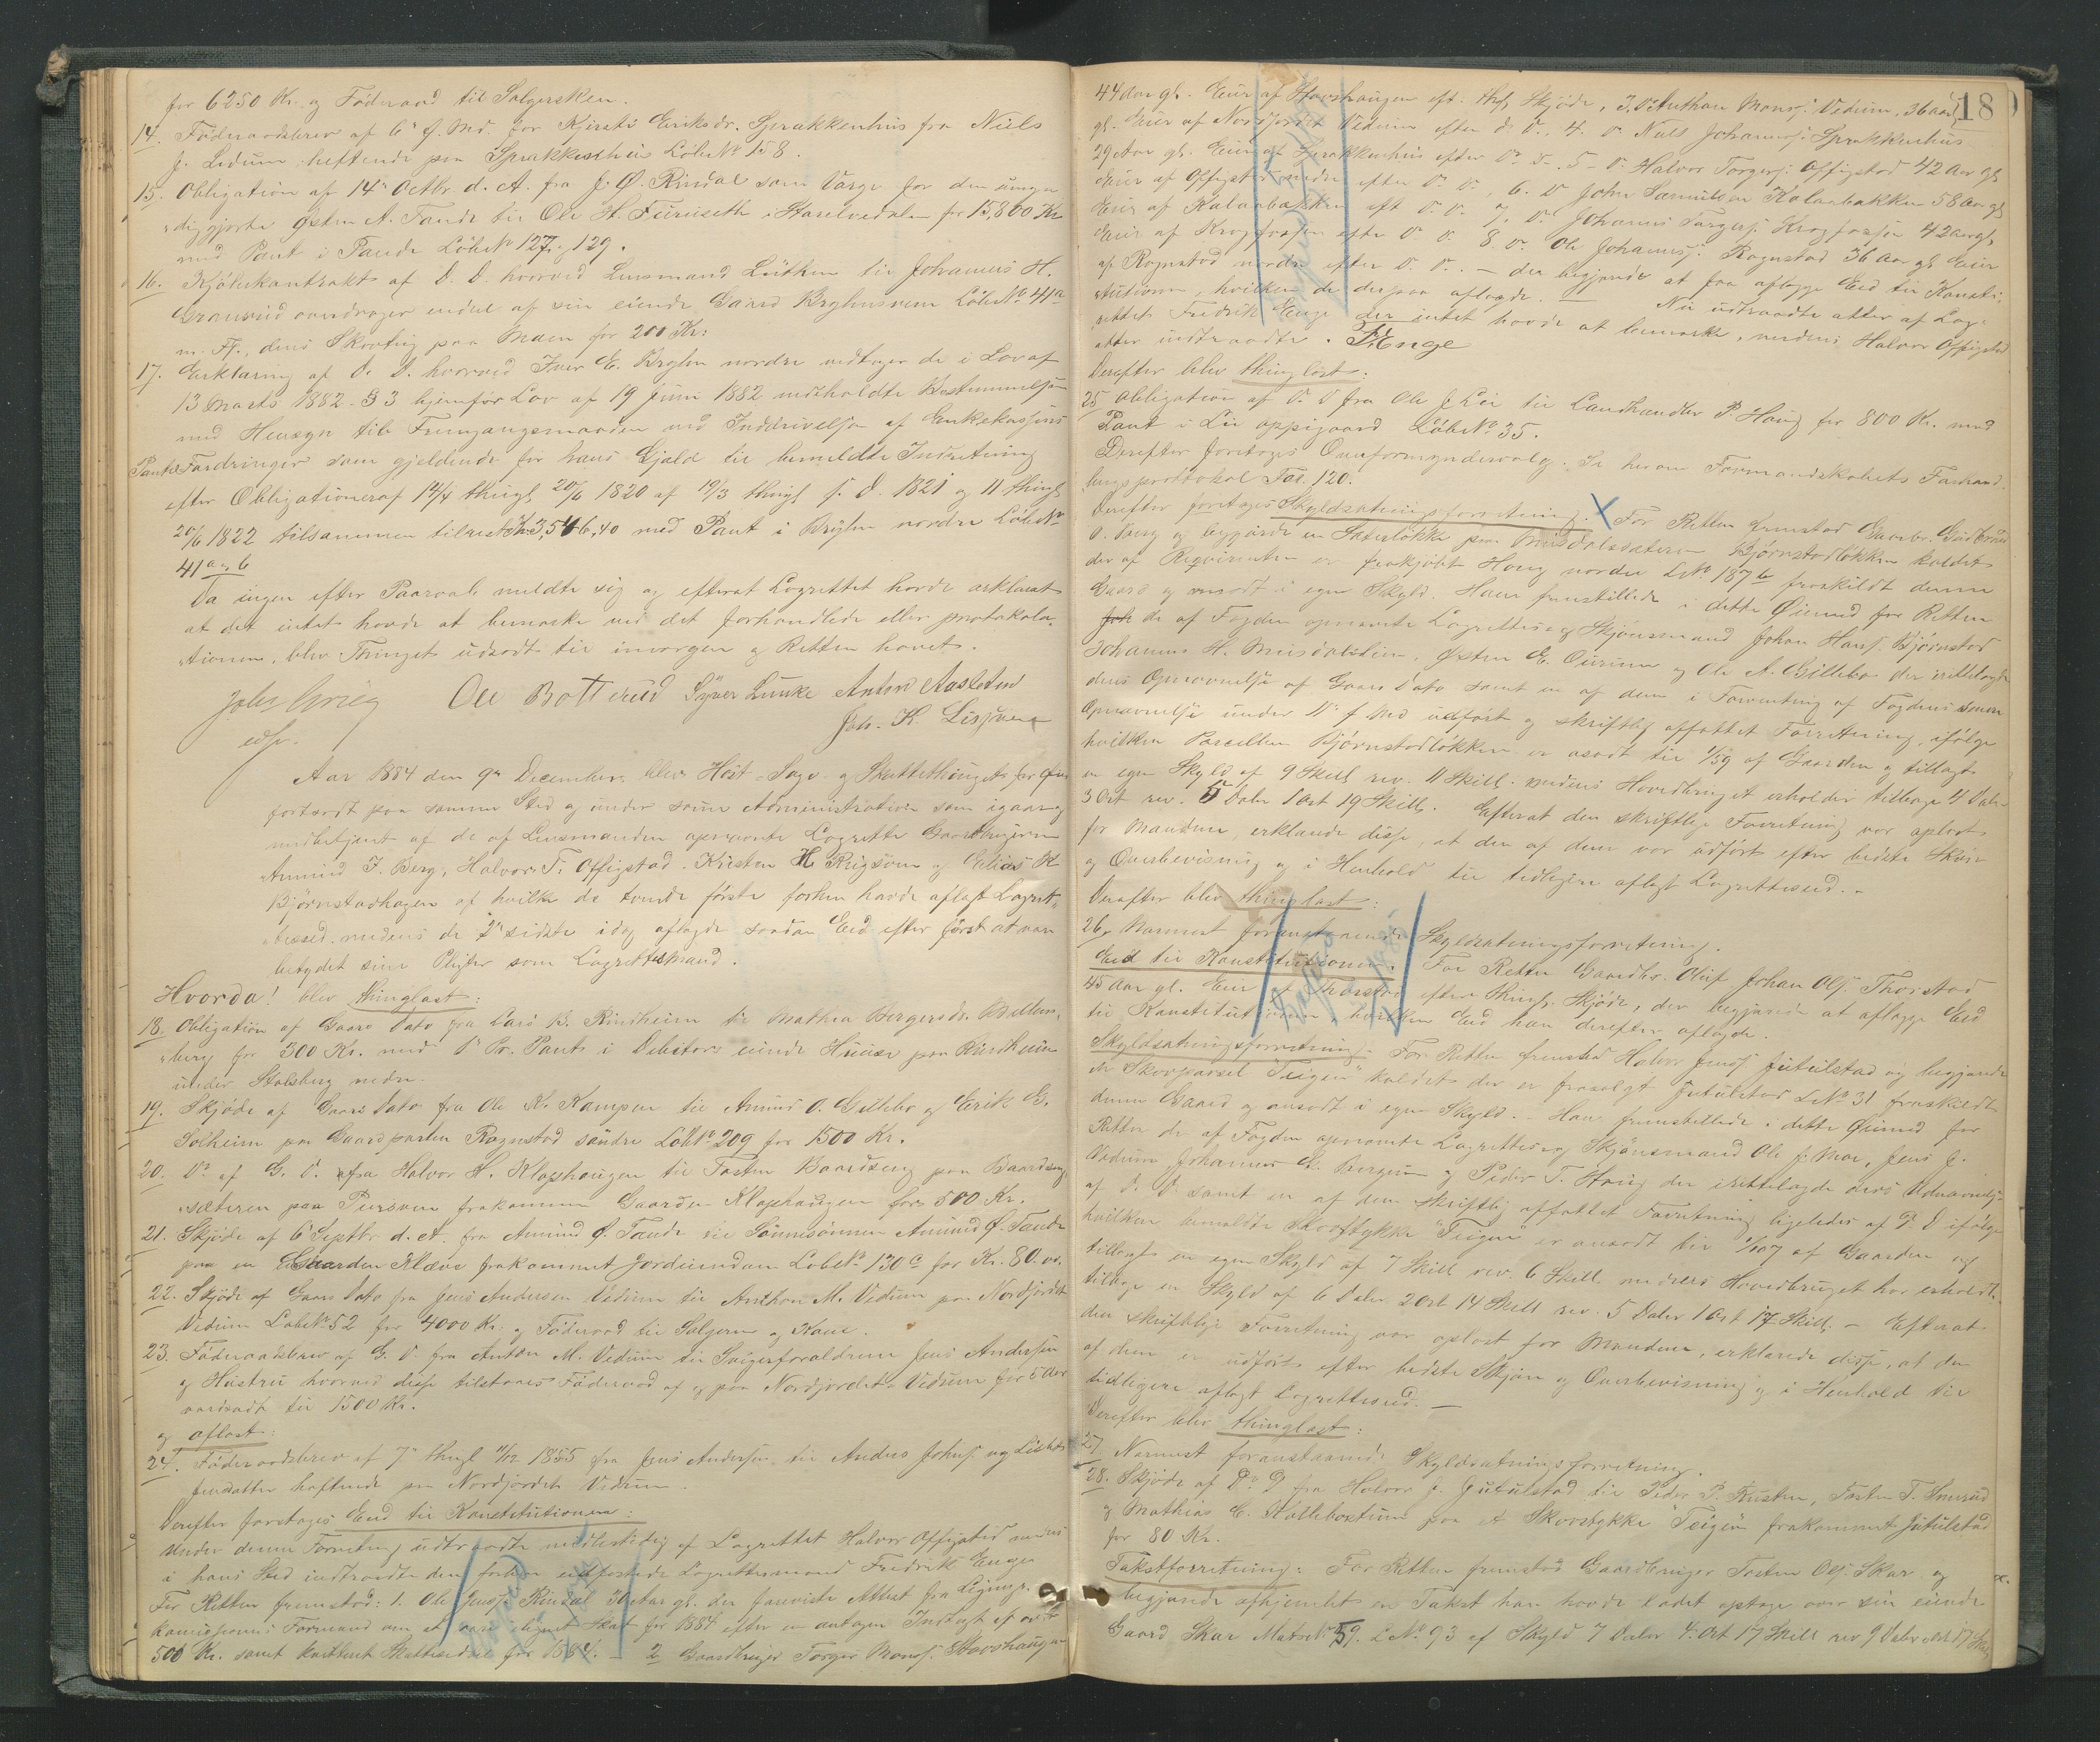 for 6250 Kr. og Föderaad til Sælgersken.
14. Föderaadsbrev af 6te f. Md. for Kjersti Eriksdr. Sprækkenhus fra Niels
J. Ledum heftende paa Løbe№ 158.
15. Obligation af 14de Octbr. d. A. fra J. Ø. Rindal som Værge for den umyn-
diggjorte Østen A. Tande til Ole H. Furuseth i for 15,800 Kr.
med Pant i Tande Løbe№ 127 og 129.
16. Kjöbekontrakt af D. D. hvorved Lensmand Lütken til Johannes H.
overdrager endel af sin eiende Gaard Løbe№ 41a
m. Fl., dens Skovteig paa Moen for 200 Kr.
17. Erklæring af D. D. hvorved Iver E. Bryhn nordre vedtager de i Lov af
13 Marts 1882 § 3 hjemför Lov af 19 Juni 1882 indeholdte Bestemmelser
med Hensyn til Fremgangsmaaden ved Inddrivelse af Enkekassens
Fordringer som gjeldende for hans Gjæld til bemeldte Indretning
efter Obligationer af 14/4 thingl. 20/6 1820 af 19/3 thingl. s. D. 1821 og 11 thingl.
20/6 1822 tilsammen med Pant i Bryhn nordre Løbe№
41 a og b
Da ingen efter Paaraab meldte sig og efterat Lagrettet havde erklæret
at det intet havde at bemærke ved det forhandlede eller protokola-
tionen, blev Thinget udsadt til imorgen og Retten hævet.
Joh. Grieg Ole Botterud Syver Lunke Anton Aasletten
edsv. Joh. K.
Aar 1884 den 9de December blev Höst-Sage- og Skattethinget for
fortsadt paa samme Sted og under samme Administration som igaar og
medbetjent af de af Lensmanden opnævnte Lagrette Gaardbrugerne
Amund F. Berg, Halvor T. Offigstad, Kristen H. og Elias K.
Björnstadhagen af hvilke de tvende förste forhen havde aflagt Lagret-
tesed, medens de 2de sidste idag aflagde saadan Eed efter först at være
betydet sine Pligter som Lagrettesmænd.
Hvorda! blev thinglæst:
18. Obligation af Gaars Dato fra Lars B. Rindheim til Mathea Bergersdr.
berg for 300 Kr. med 1ste Pr. Pant i Debitors eiende Huuse paa Rindheim
under Stalsberg nedre.
19. Skjöde af Gaars Dato fra Ole K. Kampen til Amund O. Gillebo og Erik G.
Solheim paa Gaardparten Ragnstad söndre Løbe№ 209 for 1500 Kr.
20. Do af G. D. fra Halvor H. Klophaugen til Torsten Baardseng paa Baardseng-
sæteren paa frakommen Gaarden Klophaugen for 500 Kr.
21. Skjöde af 6te Septbr. d. A. fra Amund Ø. Tande til Sönnesönnen Amund Ø. Tande
paa en Gaarden Kleve frakommet Jordeiendom Løbe№ 130c for Kr. 80.
22. Skjöde af Gaars Dato fra Jens Andersen Vedum til Anthon M. Vedum paa Nordjordet
Vedum Løbe№ 52 for 4000 Kr. og Föderaad til Sælgeren og Kone.
23. Föderaadsbrev af G. D. fra Anton M. Vedum til Svigerforældrene Jens Andersen
og Hustru hvorved disse tilstaaes Föderaad af og paa Nordjordet Vedum for 5 Aar
værdsadt til 1500 Kr.
og aflæst:
24. Föderaadsbrev af 7de thingl. 11/12 1855 fra Jens Andersen til Anders Johns. og Lisbet
Jensdatter heftende paa Nordjordet Vedum.
Derefter foretoges Eed til Konstitutionen:
Under denne Forretning udtraadte midlertidig af Lagrettet Halvor Offigstad medens
i hans Sted indtraadte den forhen edfæstede Lagrettesmand Fredrik Enge.
For Retten fremstod: 1. Ole Jenss. Rindal 30 Aar gl. der foreviste Attest fra Ligningskommissionens
Formand om at være ilignet Skat for 1884 efter en antagen Indtægt af over
500 Kr. samt kvitteret Skatteseddel for 1884. – 2 Gaardbruger Torger Monss. Stavshaugen
18
44 Aar gl. Eier af Stavshaugen eft. thgl. Skjöde, 3. Do Anthon Monss. Vedum, 36 Aar
gl. Eier af Nordjordet Vedum efter d. D., 4. Do Niels Johanness. Sprækkenhus
29 Aar gl. Eier af Sprækkenhus efter Do D. – 5 – Do Halvor Torgers. Offigstad 42 Aar gl.
Eier af Offigstad nedre efter Do Do, 6. Do John Samuelsen Kalvebakken 58 Aar gl.
Eier af Kalvebakken eft. D. D. 7. Do Johannes Torgers. Krogfossen 42 Aar gl.
Eier af Krogfossen efter Do D. 8. Do Ole Johanness. Ragnstad 36 Aar gl. Eier
af Ragnstad nordre efter D. D. – der begjærede at faa aflægge Eed til Konsti-
tutionen, hvilken de derpaa aflagde. – Nu udtraadte atter af Lag-
rettet Fredrik Enge der intet havde at bemærke, medens Halvor Offigstad
atter indtraadte. F. Enge
Derefter blev thinglæst:
25 Obligation af D. D. fra Ole J. Lie til Landhandler P. Haug for 800 Kr. med
Pant i Lie oppigaard Løbe№ 35.
Derefter foretoges Overformyndervalg. Se herom Formandskabets Forhand-
lingsprotokol Fol. 120.
Derefter foretoges Skyldsætningsforretning. X For Retten fremstod Gaardbr. Gudbrand
O. Berg og begjærede en Sæterlökke paa Björnstadlökken kaldet
der af Reqvirenten er frakjöbt Haug nordre L№ 187b fraskildt denne
Gaard og ansadt i egen Skyld. Han fremstillede i dette Øiemed for Retten
de af Fogden opnævnte Lagrettes- og Skjönsmænd Johan Hans. Björnstad
Johannes H. Musdalslien, Østen E. Öurum og Ole A. Gillebo der irettelagde
deres Opnævnelse af Gaars Dato samt en af dem i Forventning af Fogdens senere
Opnævnelse under 11te f. Md. udfört og skriftlig affattet Forretning, ifölge
hvilken Parcellen Björnstadlökken er ansadt til 1/59 af Gaarden og tillagt
en egen Skyld af 9 Skill. rev. 11 Skill. medens Hovedbruget erholder tilbage 4 Daler
3 Ort rev. 5 Daler 1 Ort 19 Skill. Efterat den skriftlige Forretning var oplæst
for Mændene, erklærede disse, at den af dem var udfört efter bedste Skjön
og Overbevisning og i Henhold til tidligere aflagt Lagrettesed. –
Derefter blev thinglæst:
26. Nærmest foranstaaende Skyldsætningsforretning.
Eed til Konstitutionen. For Retten Gaardbr. Oluf Johan Ols. Thorstad
45 Aar gl. Eier af Thorstad efter thingl. Skjöde, der begjærede at aflægge Eed
til Konstitutionen, hvilken Eed han derefter aflagde.
Skyldsætningsforretning. For Retten fremstod Halvor Jenss. Jutulstad og begjærede
et Skovparcel "Teigen" kaldet der er frasolgt Jutulstad L№ 31 fraskildt
denne Gaard og ansadt i egen Skyld. – Han fremstillede i dette Øiemed for
Retten de af Fogden opnævnte Lagrettes- og Skjönsmænd Ole J. Moe, Jens J.
Vedum, Johannes G. Bergum og Peder T. Haug der irettelagde deres Udnævnelse
af D. D. samt en af dem skriftlig affattet Forretning ligeledes af D. D. ifölge
hvilken bemeldte Skovstykke "Teigen" er ansadt til 1/107 af Gaarden og
tillagt en egen Skyld af 7 Skill. rev. 6 Skill. medens Hovedbruget har erholdt
tilbage en Skyld af 6 Daler 2 Ort 14 Skill. rev. 5 Daler 1 Ort 17 Skill. – Efterat
den skriftlige Forretning var oplæst for Mændene, erklærede disse, at den
af dem er udfört efter bedste Skjön og Overbevisning og i Henhold til
tidligere aflagt Lagrettesed. –
Derefter blev thinglæst:
27 Nærmest foranstaaende Skyldsætningsforretning.
28. Skjöde af D. D. fra Halvor J. Jutulstad til Peder P. Tosten T.
og Mathias C. paa et Skovstykke "Teigen" frakommet Jutulstad
for 80 Kr.
Takstforretning: For Retten fremstod Gaardbruger Tosten Ols. Skar og
begjærede afhjemlet en Takst han havde ladet optage over sin eiende
Gaard Skar Matr№ 59. L№ 93 af Skyld 7 Daler 4 Ort 17 Skill. rev 9 Daler